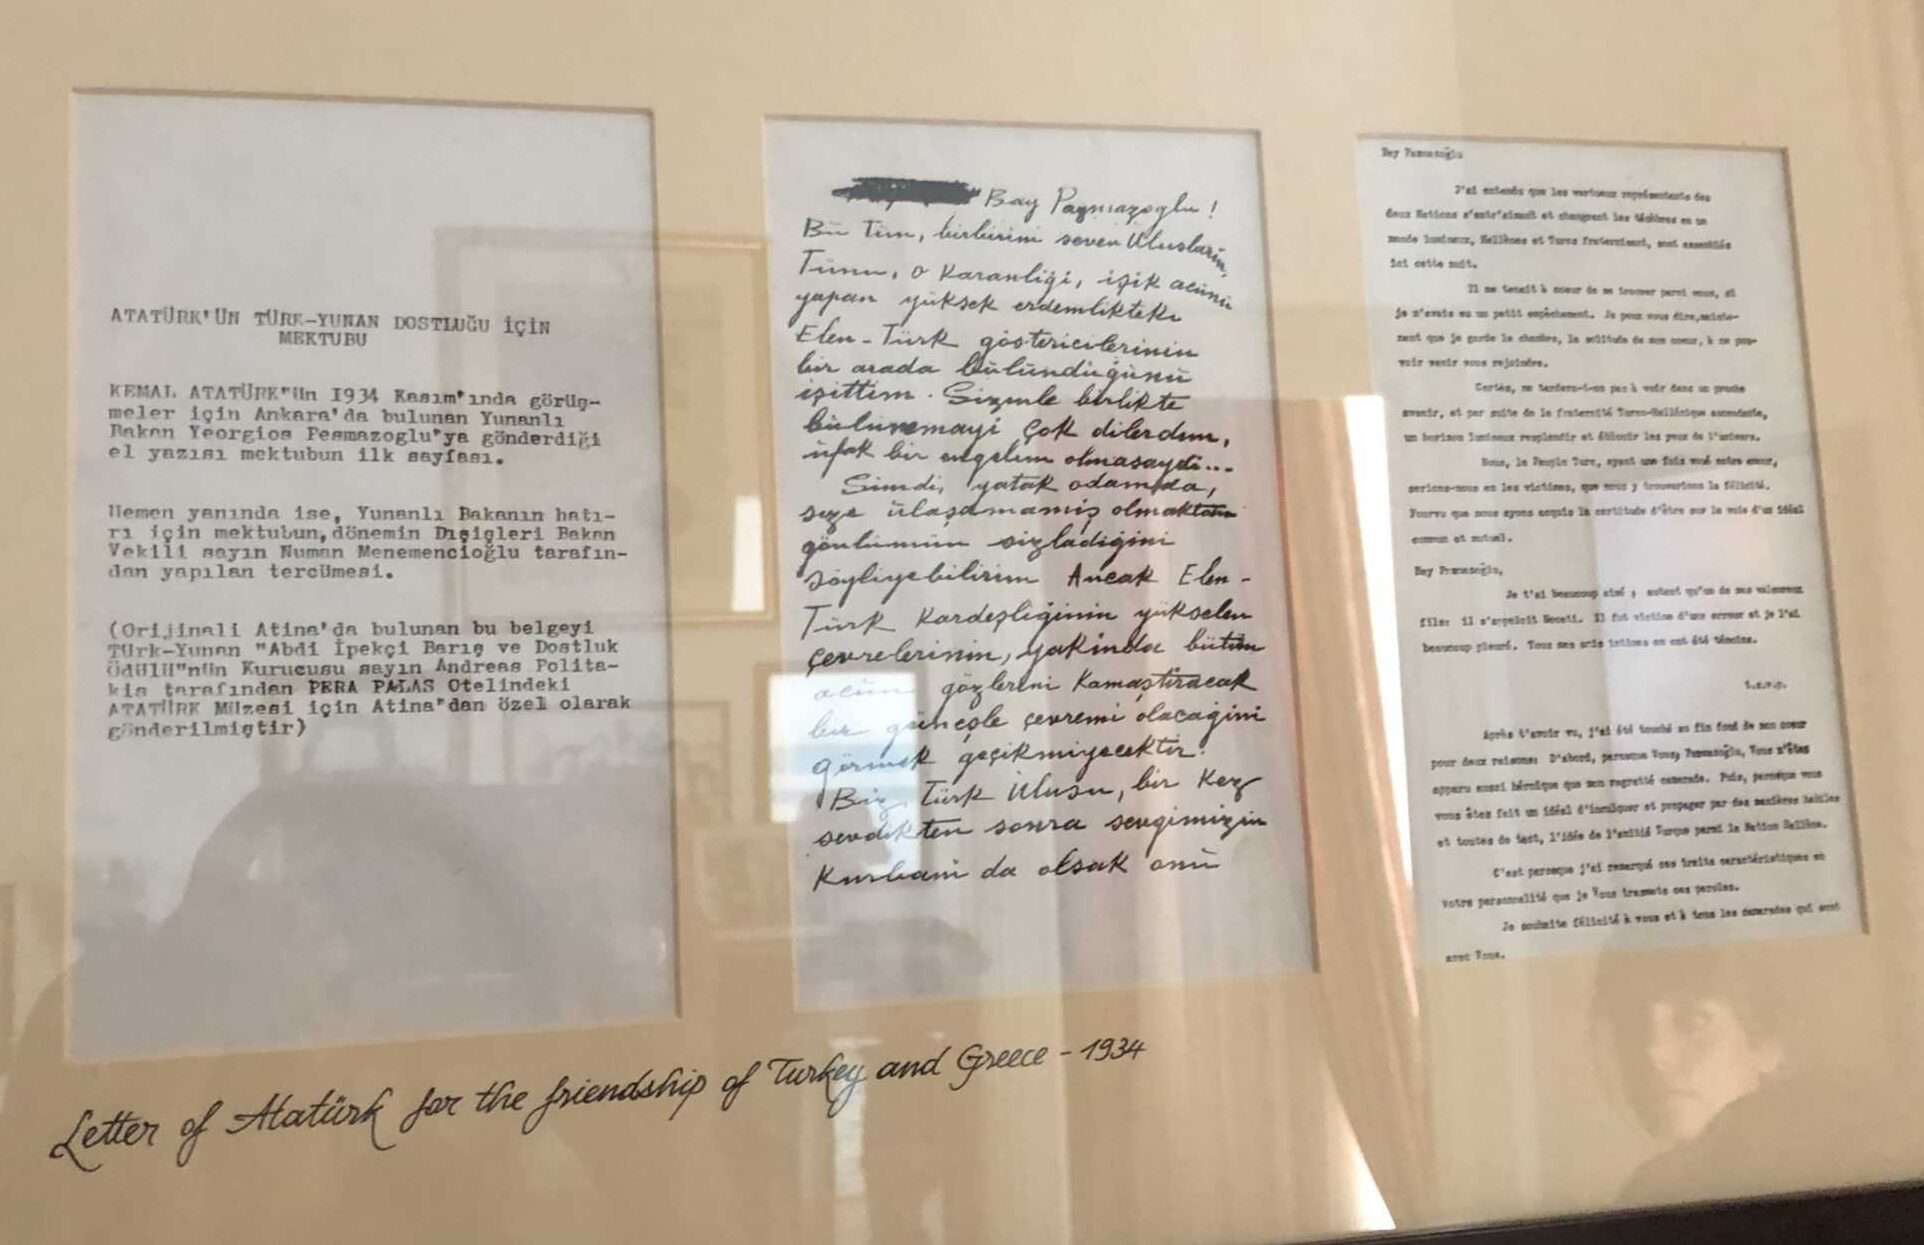 ATATÜRK'ÜN TÜRK-YUNAN DOSTLUĞU İÇİN
MEKTUBU
KEMAL ATATÜRK"ün 1934 Kasım'ında görüş-
meler için Ankara'da bulunan Yunanlı
Bakan Yeorgios Pesmazoglu'ya gönderdiği
el yazısı mektubun ilk sayfası.
Hemen yanında ise, Yunanlı Bakanın hatı-
rı için mektubun,dönemin Dışişleri Bakan
Vekili sayın Numan Menemencioğlu tarafın-
dan yapılan tercümesi.
(Orijinali Atina'da bulunan bu belgeyi
Türk-Yunan "Abdi İpekçi Barış ve Dostluk
Ödülü"nün Kurucusu sayın Andreas Polita-
kis tarafından PERA PALAS Otelindeki
ATATÜRK Müzesi için Atina'dan özel olarak
gönderilmiştir)
Bay Pazmazoglu!
Bü Tün, birbirini seven Ulusların,
Tünü, o karanliği, işik acünü
yapan yüksek erdemlikteki
Elen-Türk göstericilerinin
bir arada bülündüğünü
işittim. Sizinle birlikte
bülünmayi çok dilerdim,
üfak bir engelim olmasaydi...
Simdi, yatak odamda,
size ülaşamamiş olmaktan
gönlümün sizladiğini
söyliyebilirim Ancak Elen-
Türk Kardeşliğinin yükselen
çevrelerinin, yakinda bütün
acün gözlerini Kamaştiracak
bir güneşle çevremi olacağini
görmek geçikmiyecektir.
Biz, Türk Ulusu, bir kez
sevdikten sonra sevgimizin
Kurbani da olsak onü
Bey Pazmazoğlu
J'ai entendu que les vertueux représentants des
deux Nations s'entr'aimant et changeant les ténèbres en un
monde lumineux, Hellènes et Turcs fraternisant, sont assemblés
ici cette nuit.
Il me tenait à coeur de me trouver parmi vous, si
je n'avais eu un petit empêchement. Je peux vous dire,mainte-
nant que je garde la chambre, la solitude de mon coeur, à ne pou-
voir venir vous rejoindre.
Certes, ne tardera-t-on pas à voir dans un proche
avenir, et par suite de la fraternité Turco-Hellénique ascendante,
un horizon lumineux resplendir et éblouir les yeux de l'univers.
Nous, le Peuple Turc, ayant une fois voué notre coeur,
serions-nous en les victimes, que nous y trouverions la félicité.
Pourvu que nous ayons acquis la certitude d'être sur la voie d'un idéal
commun et mutuel.
Bey Pazmazoğlu,
Je t'ai beaucoup aimé ; autant qu'un de mes valeureux
fils: il s'appelait Necati. Il fut victime d'une erreur et je l'ai
beaucoup pleuré. Tous mes amis intimes en ont été témoins.
Après t'avoir vu, j'ai été touché au fin fond de mon coeur
pour deux raisons: D'abord, parceque Vous, Pazmazoğlu, Vous m'êtes
apparu aussi héroïque que mon regretté camarade. Puis, parceque vous
vous êtes fait un idéal d'inculquer et propager par des manières habiles
et toutes de tact, l'idée de l'amitié Turque parmi la Nation Hellène.
C'est parceque j'ai remarqué ces traits caractéristiques en
votre personnalité que je Vous transmets ces paroles.
Je souhaite félicité à vous et à tous les camarades qui sont
avec Vous.
Letter of Atatürk for the friendship of Turkey and Greece - 1934